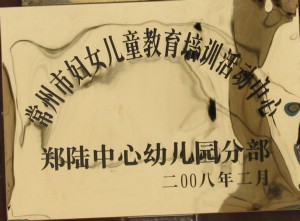 常州市妇女儿童教育培训活动中心
郑陆中心幼儿园分部
二00八年二月